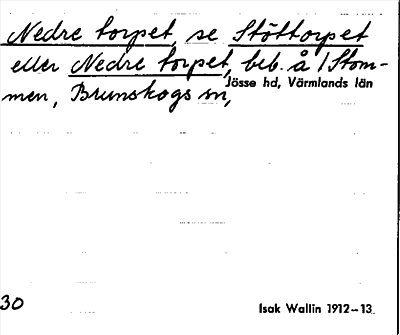 Nedre torpet, se Stöttorpet
eller Nedre torpet, beb. å /Stom-
men, Brunskogs sn,
Jösse hd, Värmlands län
30
Isak Wallin 1912–13.